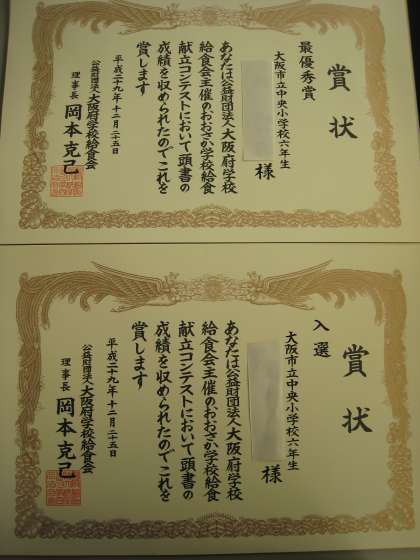 賞状
最優秀賞
大阪市立中央小学校六年生
様
あなたは公益財団法人大阪府学校
給食会主催のおおさか学校給食
献立コンテストにおいて頭書の
成績を収められたのでこれを
賞します
平成二十九年十二月二十五日
公益財団法人大阪府学校給食会
理事長 岡本克己
賞状
入選
大阪市立中央小学校六年生
様
あなたは公益財団法人大阪府学校
給食会主催のおおさか学校給食
献立コンテストにおいて頭書の
成績を収められたのでこれを
賞します
平成二十九年十二月二十五日
公益財団法人大阪府学校給食会
理事長 岡本克己